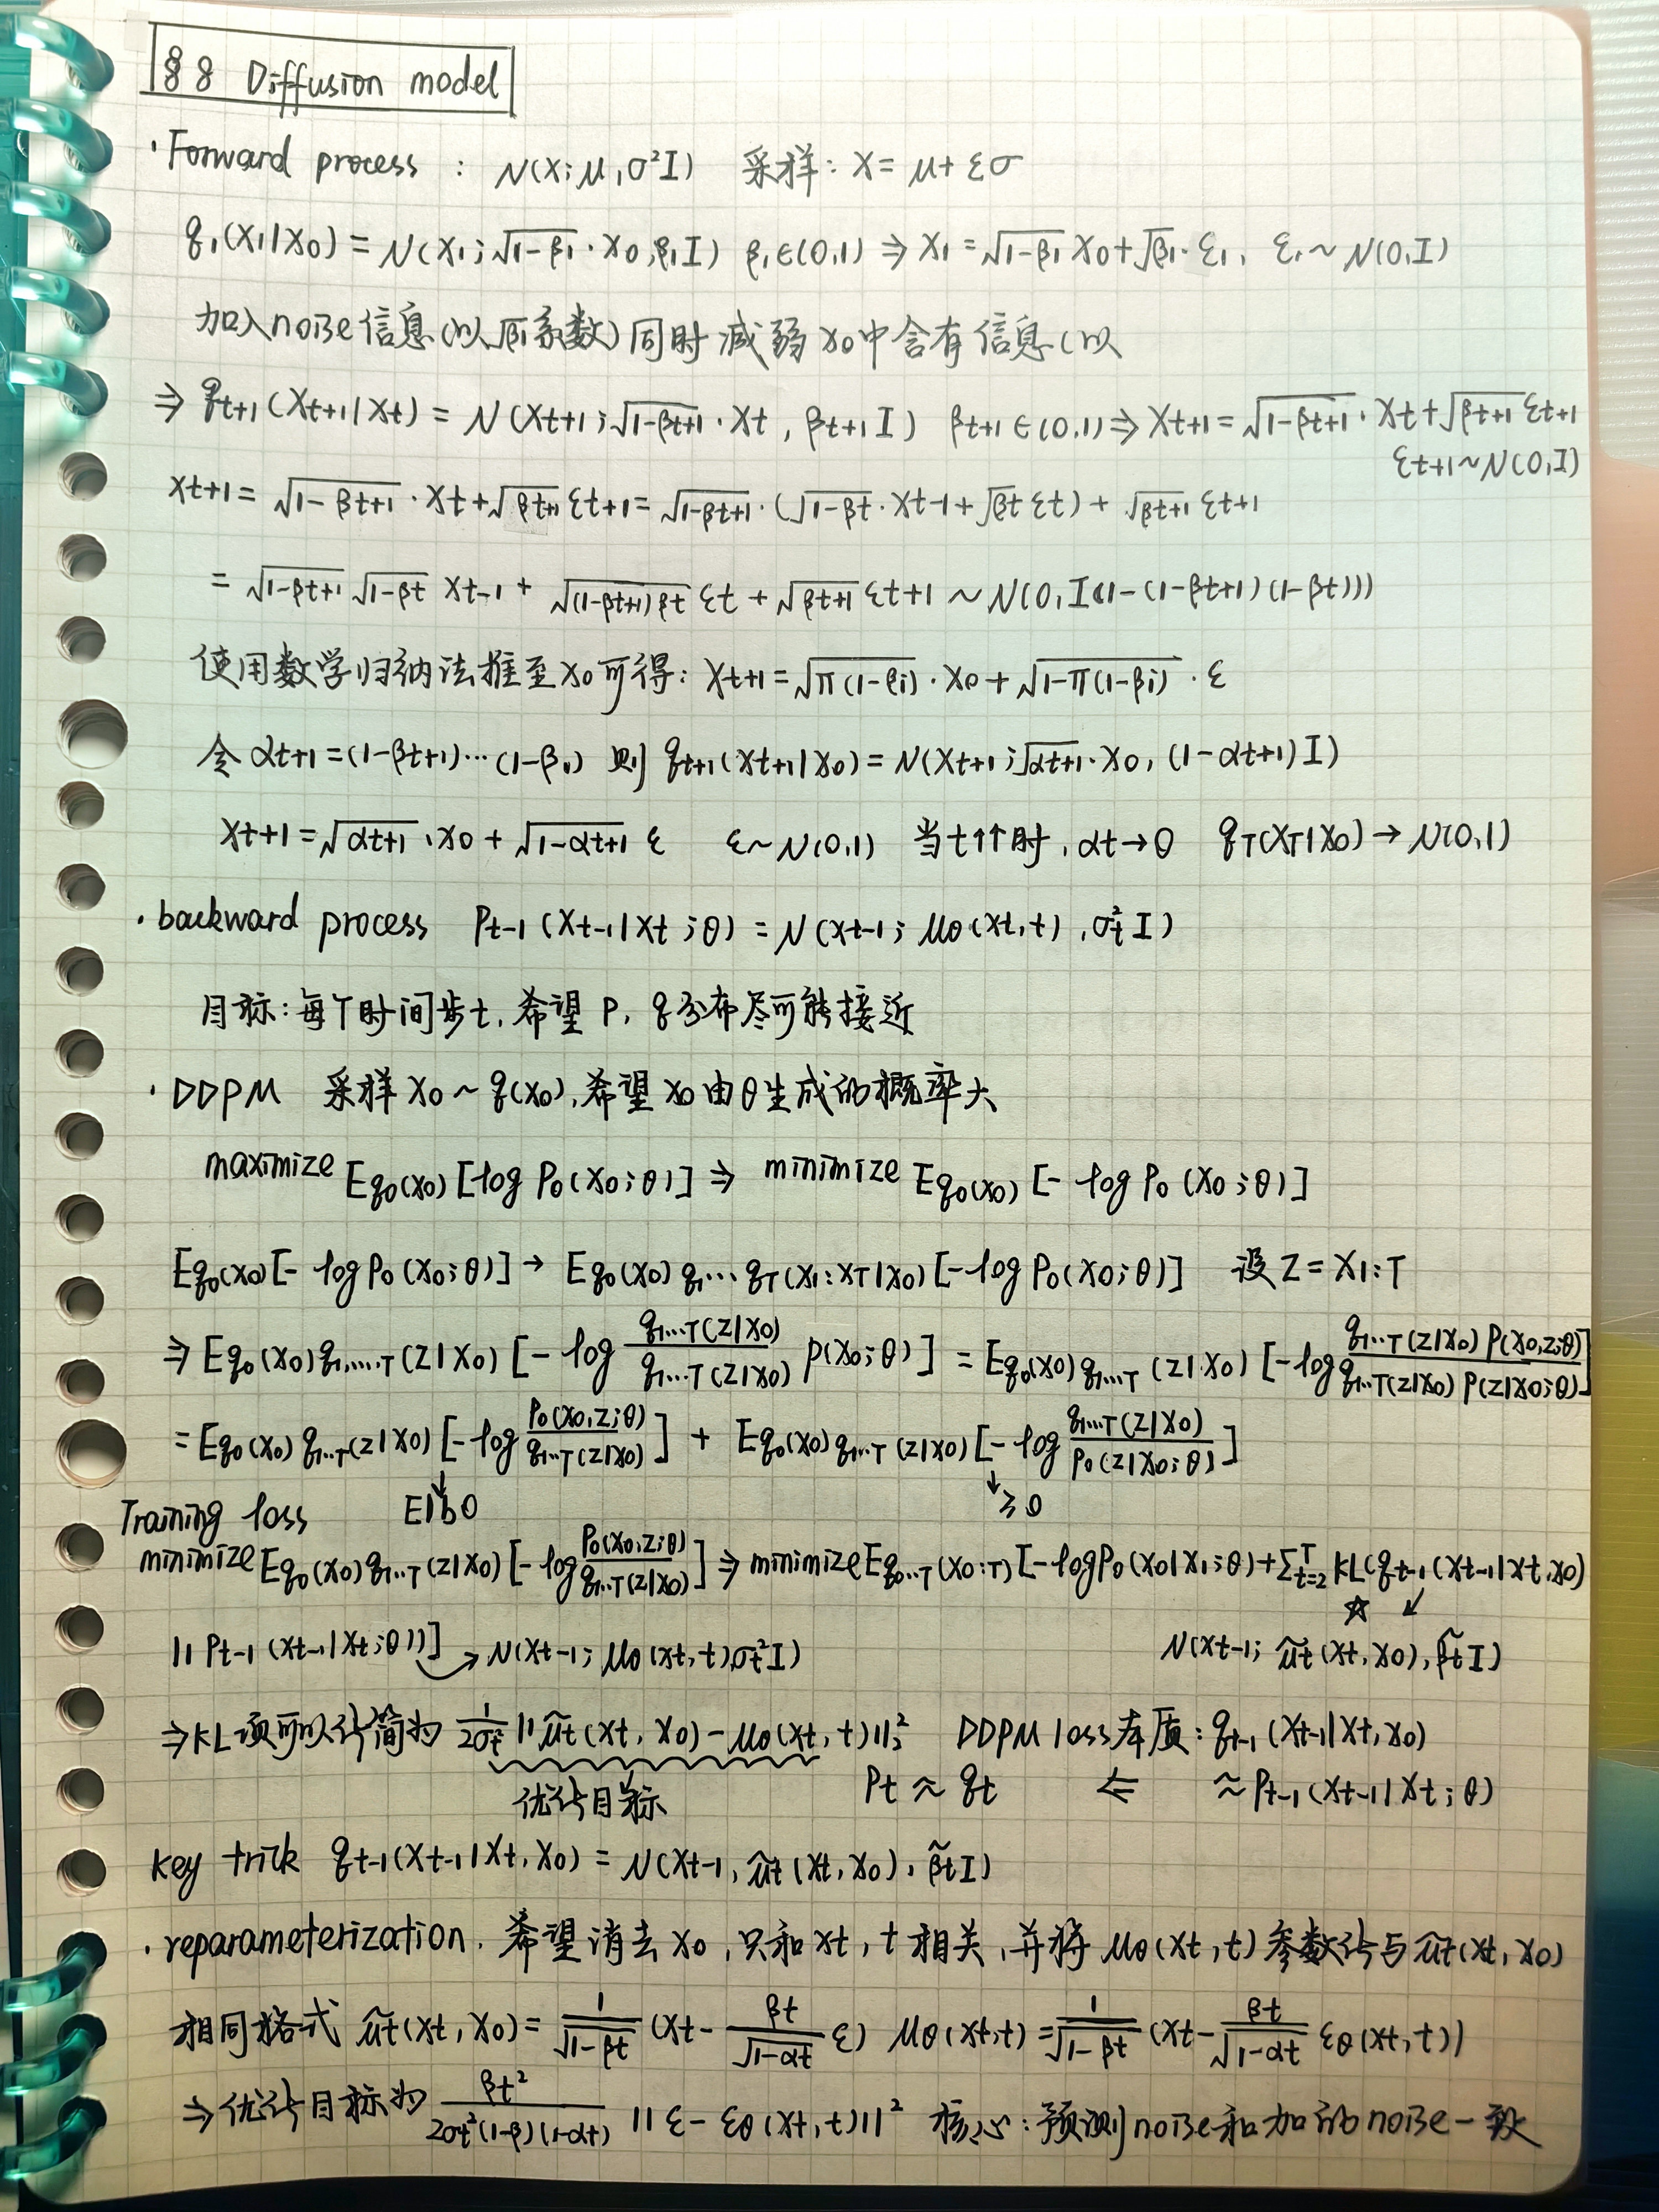 §8 Diffusion model
· Forward process : N(x; μ, σ²I) 采样: x = μ + εσ
q₁(x₁|x₀) = N(x₁; √(1-β₁)·x₀, β₁I) β₁∈(0,1) ⇒ x₁ = √(1-β₁) x₀ + √β₁·ε₁, ε₁ ~ N(0,I)
加入noise信息(以√β₁系数)同时减弱x₀中含有信息(以
⇒ q_{t+1}(x_{t+1}|x_t) = N(x_{t+1}; √(1-β_{t+1})·x_t, β_{t+1}I) β_{t+1}∈(0,1) ⇒ x_{t+1} = √(1-β_{t+1})·x_t + √β_{t+1} ε_{t+1}
ε_{t+1}~N(0,I)
x_{t+1} = √(1-β_{t+1})·x_t + √β_{t+1} ε_{t+1} = √(1-β_{t+1})·(√(1-β_t)·x_{t-1} + √β_t ε_t) + √β_{t+1} ε_{t+1}
= √(1-β_{t+1}) √(1-β_t) x_{t-1} + √((1-β_{t+1})β_t) ε_t + √β_{t+1} ε_{t+1} ~ N(0, I(1-(1-β_{t+1})(1-β_t)))
使用数学归纳法推至x₀可得: x_{t+1} = √(π(1-βi))·x₀ + √(1-π(1-βi))·ε
令 α_{t+1} = (1-β_{t+1})···(1-β₁) 则 q_{t+1}(x_{t+1}|x₀) = N(x_{t+1}; √α_{t+1}·x₀, (1-α_{t+1})I)
x_{t+1} = √α_{t+1}·x₀ + √(1-α_{t+1}) ε ε~N(0,1) 当t↑↑时, α_t→0 q_T(x_T|x₀) → N(0,1)
· backward process P_{t-1}(x_{t-1}|x_t; θ) = N(x_{t-1}; μ_θ(x_t, t), σ_t² I)
目标: 每个时间步t, 希望 P, q分布尽可能接近
· DDPM 采样 x₀ ~ q(x₀), 希望 x₀ 由θ生成的概率大
maximize E_{q₀(x₀)} [log P₀(x₀; θ)] ⇒ minimize E_{q₀(x₀)} [- log P₀(x₀; θ)]
E_{q₀(x₀)} [- log P₀(x₀; θ)] → E_{q₀(x₀) q₁···q_T(x₁:x_T|x₀)} [-log P₀(x₀; θ)] 设 Z = x_{1:T}
⇒ E_{q₀(x₀)q₁,...,T(Z|x₀)} [- log (q₁...T(Z|x₀) / q₁...T(Z|x₀)) P(x₀; θ)] = E_{q₀(x₀)q₁...T(Z|x₀)} [-log (q₁...T(Z|x₀) P(x₀,Z;θ) / q₁...T(Z|x₀) P(Z|x₀;θ))]
= E_{q₀(x₀) q₁...T(Z|x₀)} [-log (P₀(x₀,Z;θ) / q₁...T(Z|x₀))] + E_{q₀(x₀)q₁...T(Z|x₀)} [- log (q₁...T(Z|x₀) / P₀(Z|x₀;θ))]
Training loss ↓ Elbo ↓ ≥0
minimize E_{q₀(x₀)q₁...T(Z|x₀)} [-log (P₀(x₀,Z;θ) / q₁...T(Z|x₀))] ⇒ minimize E_{q₀...T(x₀:T)} [-log P₀(x₀|x₁;θ) + Σ_{t=2}^T KL(q_{t-1}(x_{t-1}|x_t,x₀)
|| P_{t-1}(x_{t-1}|x_t;θ))] → N(x_{t-1}; μ_θ(x_t,t), σ_t²I) ☆ ↙ N(x_{t-1}; μ̃_t(x_t,x₀), β̃_t I)
⇒ KL项可以化简为 1/(2σ_t²) || μ̃_t(x_t, x₀) - μ_θ(x_t, t)||₂² DDPM loss本质: q_{t-1}(x_{t-1}|x_t, x₀)
优化目标 P_t ≈ q_t ⇐ ≈ P_{t-1}(x_{t-1}|x_t; θ)
key trick q_{t-1}(x_{t-1}|x_t, x₀) = N(x_{t-1}, μ̃_t(x_t, x₀), β̃_t I)
· reparameterization. 希望消去 x₀, 只和x_t, t 相关, 并将 μ_θ(x_t, t) 参数化与 μ̃_t(x_t, x₀)
相同格式 μ̃_t(x_t, x₀) = 1/√(1-β_t) (x_t - β_t/√(1-α_t) ε) μ_θ(x_t, t) = 1/√(1-β_t) (x_t - β_t/√(1-α_t) ε_θ(x_t, t))
⇒优化目标为 β_t²/(2σ_t²(1-β)(1-α_t)) || ε - ε_θ(x_t, t)||² 核心: 预测noise和加的noise一致